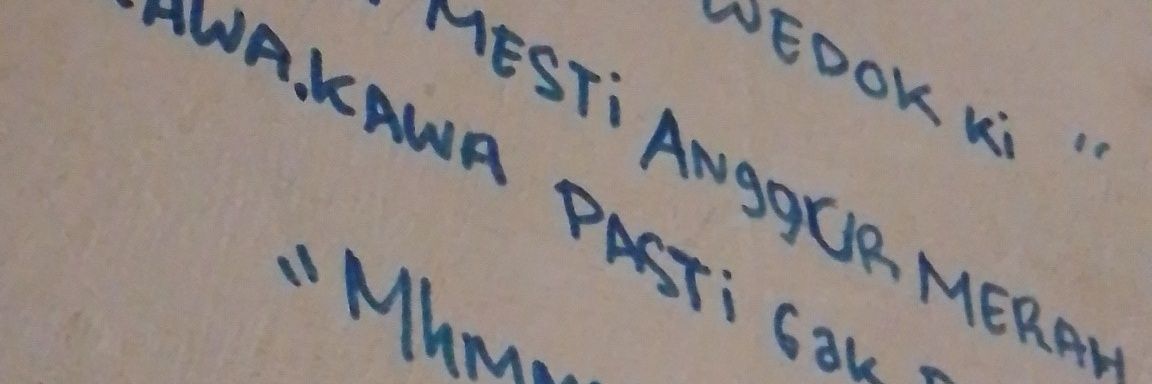 WEDOK Ki "
MESTi ANggUR MERAH
KAWA PASTi Gak
"Mhmm